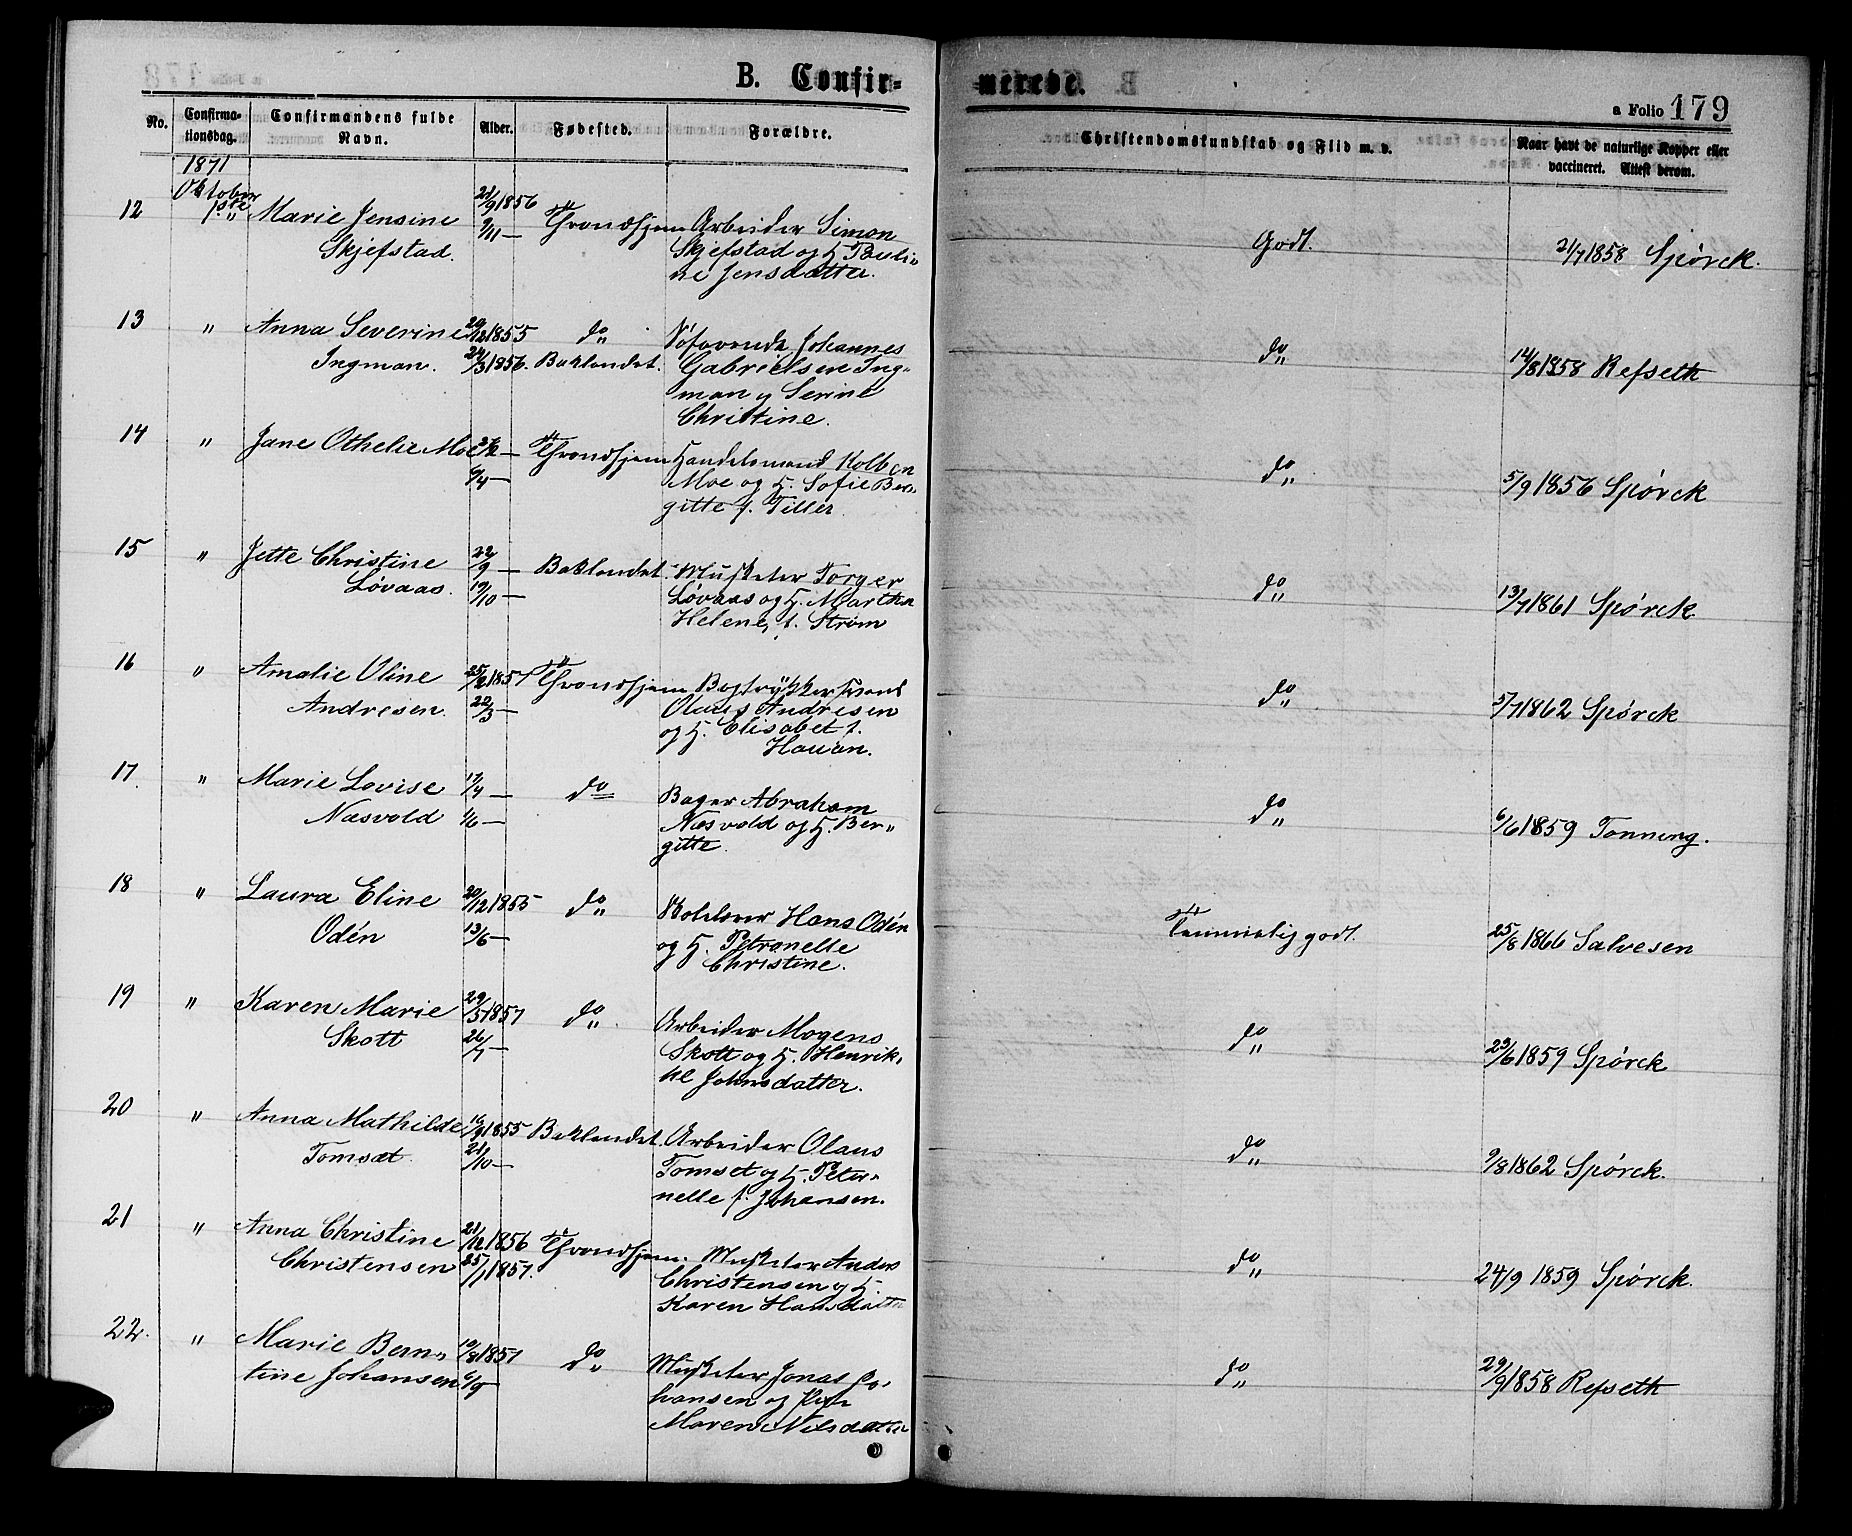 B. Confir-
merede.
a Folio 179
No.
Confirma-
tionsdag.
Confirmandens fulde
Navn.
Alder.
Fødested.
Forældre.
Christendomskundskab og Flid m. v.
Naar havt de naturlige Kopper eller
vaccineret. Attest derom.
1871
Oktober
12 1ste " Marie Jensine 21/9 1856 Throndhjem Arbeider Simon Godt. 21/7 1858 Spørck.
Skjefstad. 9/11 — Skjefstad og H. Pauli-
ne Jensdatter.
13 " Anna Severine 20/12 1855 do Johannes do 14/8 1858 Refseth
Ingman. 24/3 1856. Baklandet. Gabrielsen Ing-
man og Serine
Christine.
14 " Jane Othelie Moe — Throndhjem Handelsmand Kolben do 5/9 1856 Spørck
6/4 — Moe og H. Sofie Ber-
gitte f. Tiller.
15 " Jette Christine 22/9 — Baklandet. Musketer Torger do 13/7 1861 Spørck
Løvaas. 19/10 — Løvaas og H. Martha
Helene, f. Strøm
16 " Amalie Oline 25/2 1857 Throndhjem Bogtrykkersvend do 5/7 1862 Spørck
Andresen. 22/3 — Olaus Andresen
og H. Elisabet f.
Hauan.
17. " Marie Lovise 17/4 — do Bager Abraham do 6/6 1859 Tonning.
Næsvold 1/6 — Næsvold og H. Ber-
gitte.
18 " Laura Eline 20/12 1855 do Hans Odén Temmelig godt. 25/8 1866 Salvesen
Odén 13/6 — og H. Petronelle
Christine.
19 " Karen Marie 29/5 1857 do Arbeider Mogens do 23/6 1859 Spørck
Skott 26/7 — Skott og H. Henrik-
ke Johnsdatter.
20 " Anna Mathilde 16/9 1855 Baklandet. Arbeider Olaus do 9/8 1862 Spørck.
Tomsæt. 21/10 — Tomset og H. Peter-
nelle f. Johansen.
21 " Anna Christine 21/12 1856 Throndhjem. Musketer Anders do 24/9 1859 Spørck.
Christensen 25/1 1857. Christensen og H.
Karen Hansdatter
22. " Marie Bern- 10/8 1857 do Musketer Jonas Jo- do 29/9 1858 Refseth
tine Johansen 6/9 — hansen og
Maren Nilsdatter